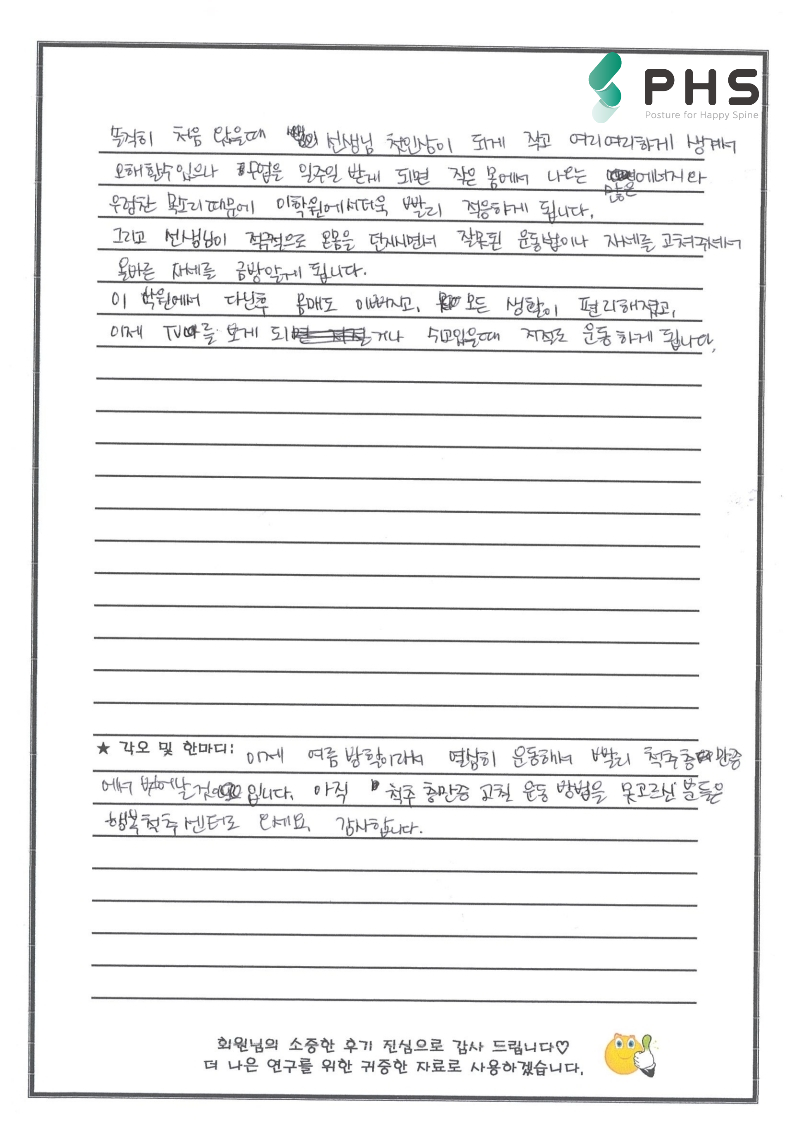 PHS
Posture for Happy Spine
솔직히 처음 왔을때 선생님 첫인상이 되게 작고 여리여리하게 생겨서
오해할수 있으나 수업은 일주일 받게 되면 작은 몸에서 나오는 많은 에너지와
우렁찬 목소리때문에 이학원에서더욱 빨리 적응하게 됩니다.
그리고 선생님이 적극적으로 온몸을 만지시면서 잘못된 운동법이나 자세를 고쳐주셔서
올바른 자세를 금방알게 됩니다.
이 학원에서 다닌후 몸매도 이뻐지고, 모든 생활이 편리해졌고,
이제 TV 보게 되거나 수고있을때 저절로 운동하게 됩니다.
★ 각오 및 한마디: 이제 여름방학이라서 열심히 운동해서 빨리 척추측만증
에서 벗어날것입니다. 아직 척추측만증 고칠 운동 방법을 못고르신 분들은
행복척추센터로 오세요. 감사합니다.
회원님의 소중한 후기 진심으로 감사 드립니다♡
더 나은 연구를 위한 귀중한 자료로 사용하겠습니다.